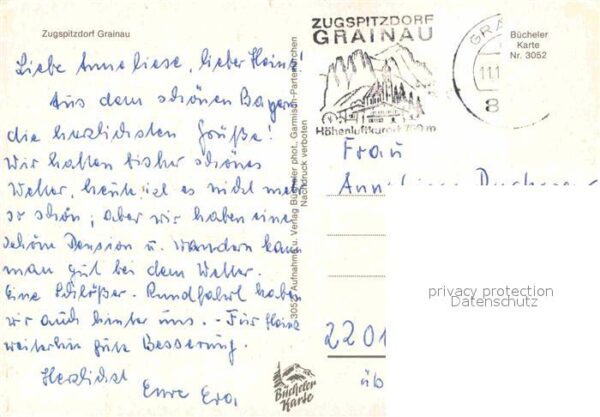 Zugspitzdorf Grainau
Liebe Anneliese, lieber Heinz!
Aus dem schönen Bayern
die herzlichsten Grüße!
Wir hatten bisher schönes
Wetter, heute ist es nicht mehr
so schön, aber wir haben eine
schöne Pension u. wandern kann
man gut bei dem Wetter.
Eine Schlößer-Rundfahrt haben
wir auch hinter uns. - Für Heinz
weiterhin gute Besserung.
Herzlichst
Eure Eva.
3052 Aufnahme u. Verlag Bücheler phot. Garmisch-Partenkirchen
Nachdruck verboten
ZUGSPITZDORF
GRAINAU
Höhenluftkurort 750 m
GRA
11.1
8
Bücheler
Karte
Nr. 3052
Frau
privacy protection
Datenschutz
2201
üb
Bücheler
Karte